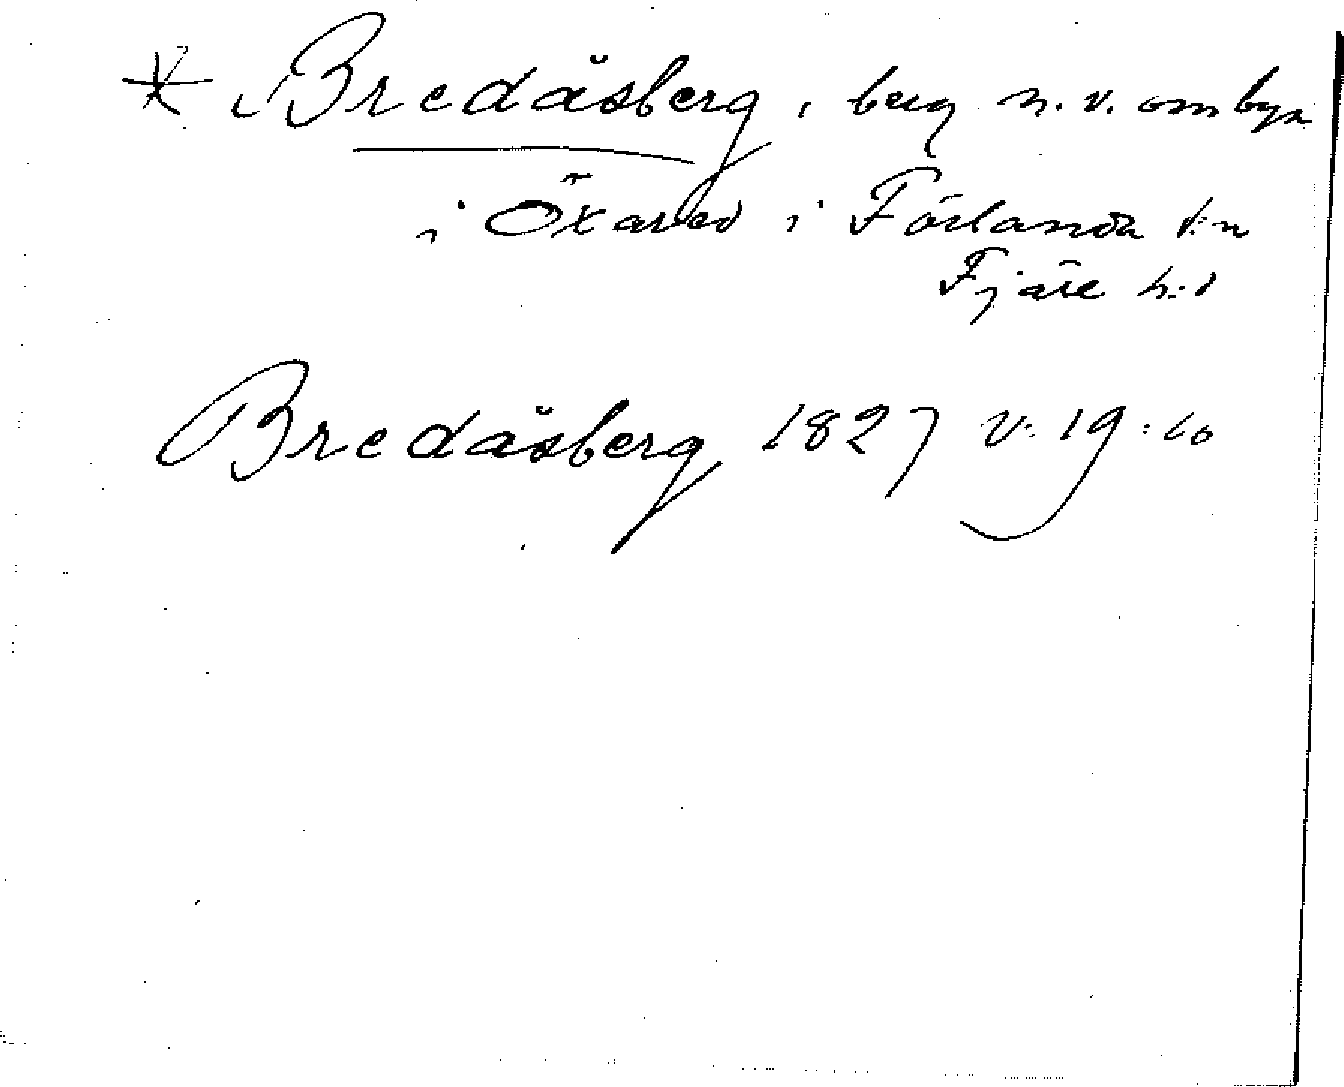 * Bredåsberg, berg n.v. om byn
i Öxared i Förlanda s:n
Fjäre h:d
Bredåsberg 1827 V: 19:10